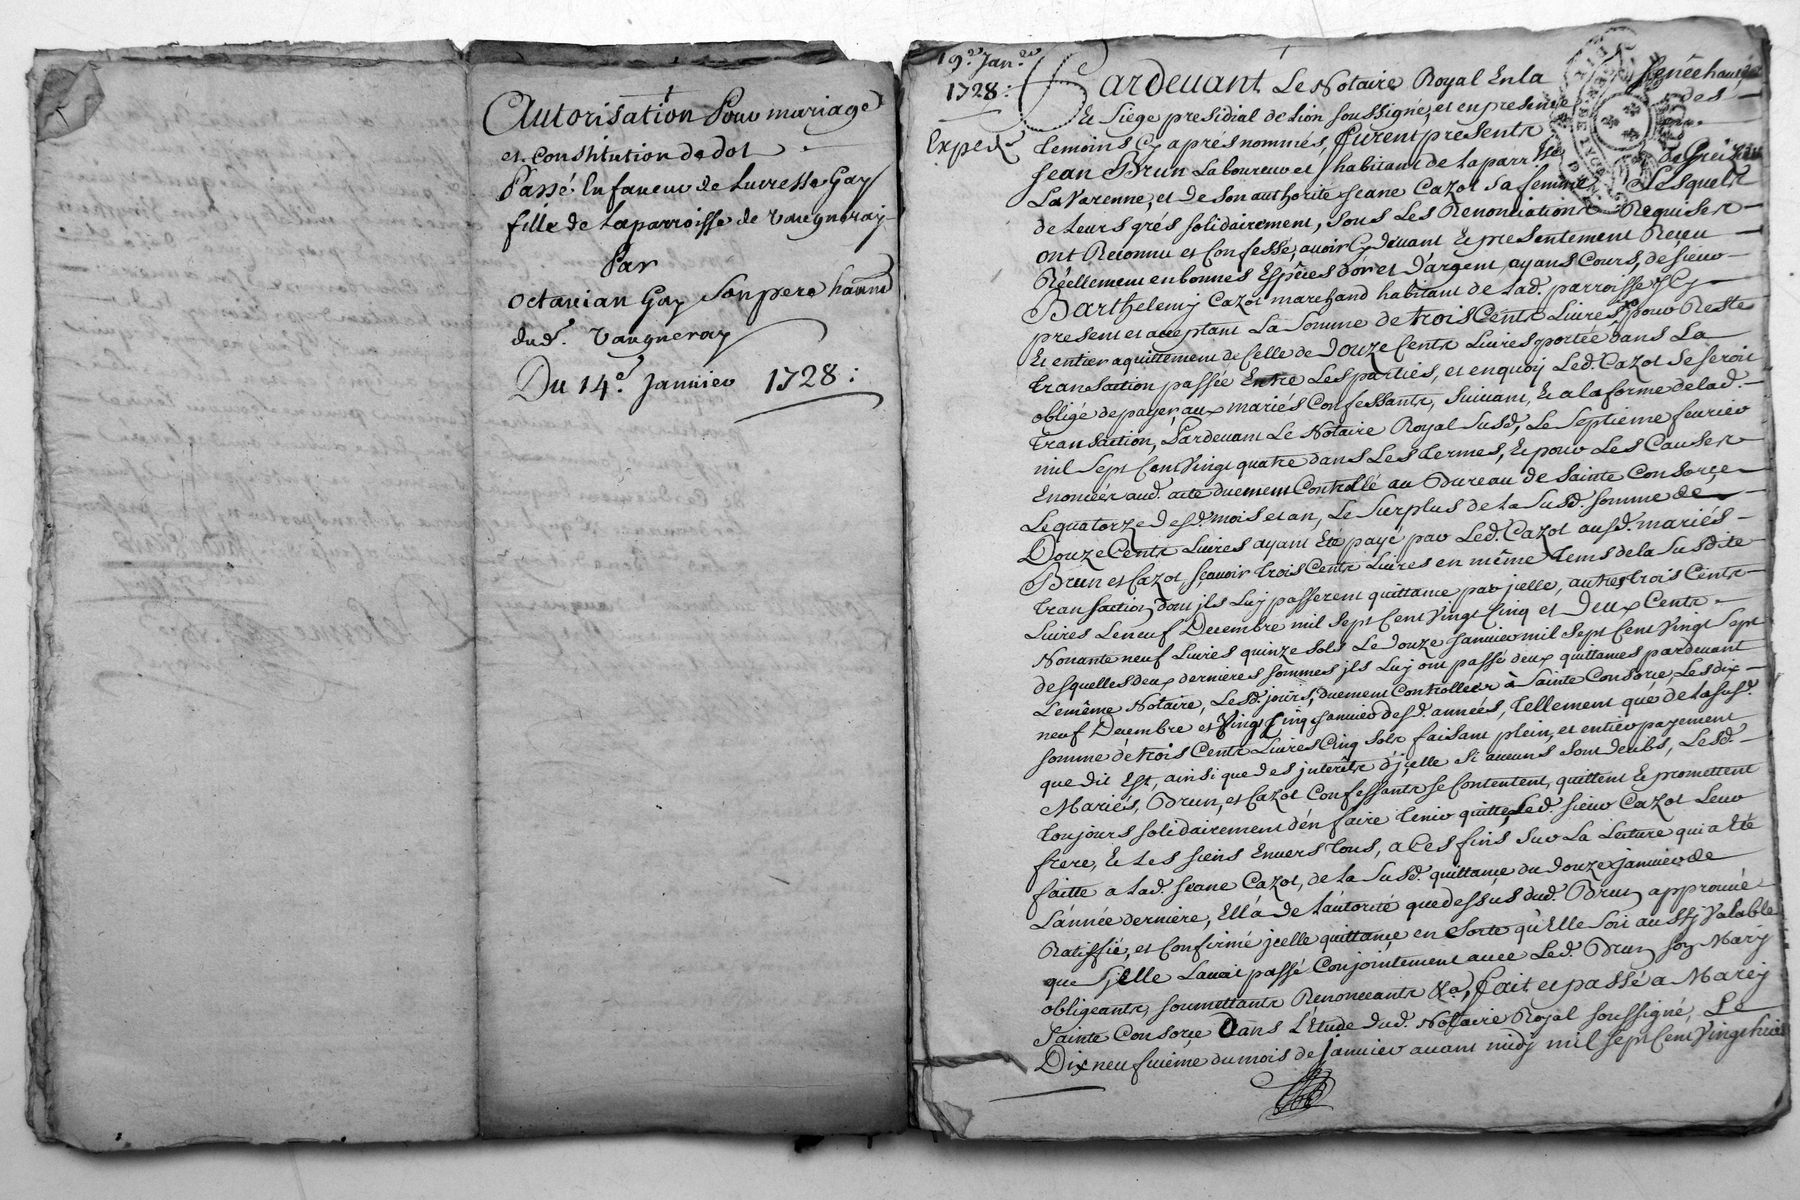 Autorisation Pour mariage
et Constitution de dot
Passé En faveur de Lucresse Gay
fille de la parroisse de Vaugneray
Par
octavian Gay son pere habitant
dud. Vaugneray
Du 14e. Janvier 1728:
19e. Janer.
1728:
Expedé.
Pardevant Le Notaire Royal En la Senéchaussée
Et Siege presidial de Lion soussigné, et en presence des
temoins Cy aprés nommés, furent presents
Jean Brun Laboureur et habitant de la parrsse. de Grézieu
La Varenne, et de son authorité Jeane Cazot sa femme, Lesquels
de Leurs grés solidairement, sous Les Renonciations Requises
ont Reconnu et Confessé, avoir Cy devant Et presentement Reçeu
Réellement en bonnes Espéces d'or et d'argent, ayans Cours, de sieur
Barthelemy Cazot marchand habitant de lad. parroisse, Icy
present et acceptant La somme de trois Cents Livres, pour Reste
Et entier aquittement de Celle de Douze Cents Livres portée dans La
transaction passée Entre Les parties, et en quoy Led. Cazot se seroit
obligé de payer aux mariés Confessants, suivant, Et a la forme de lad.
transaction, Pardevant Le Notaire Royal susd, Le septieme fevrier
mil sept Cent Vingt quatre dans Les termes, Et pour Les Causes
Enoncées aud. acte duement Controllé au Bureau de Sainte Consorçe
Le quatorze desd. mois et an, Le surplus de La susd. somme de
Douze Cents Livres ayant Eté payé par Led. Cazot ausd. mariés
Brun et Cazot, sçavoir trois Cents Livres en même tems de la susdite
transaction, dont jls Luy passerent quittance par jcelle, autres trois Cents
Livres Le neuf Decembre mil sept Cent Vingt Cinq et deux Cents
Nonante neuf Livres quinze sols Le douze Janvier mil sept Cent Vingt sept
desquelles deux dernieres sommes jls Luy ont passé deux quittances pardevant
Le même Notaire, Lesd. jours, duement Controllées à Sainte Consorce, Les dix
neuf Decembre et Vingt Cinq Janvier desd. années, tellement que de la susd.
somme de trois Cents Livres Cinq sols faisant plein, et entier payement
que dit Est, ainsi que des jnterêts d'jcelle si aucuns sont deubs, Lesd.
Mariés, Brun, et Cazot Confessants se Contentent, quittent Et promettent
toujours solidairement d'en faire tenir quitte Led. sieur Cazot Leur
frere, Et Les siens Envers tous, a Ces fins sur La Lecture qui a Eté
faitte a lad. Jeane Cazot, de la susd. quittance du douze janvier de
L'année derniere, Ell'a de L'autorité que dessus dud. Brun approuvé
Ratiffié, et Confirmé jcelle quittance en Sorte qu'Elle soit aussy Valable
que sy elle L'avoit passé Conjointement avec Led. Brun son Mary
obligeants, soumettants Renonceants &a, fait et passé a Marcy
Sainte Consorçe Dans L'Etude dud. Notaire Royal soussigné, Le
Dix neufvieme du mois de Janvier avant midy mil sept Cent Vingt huit